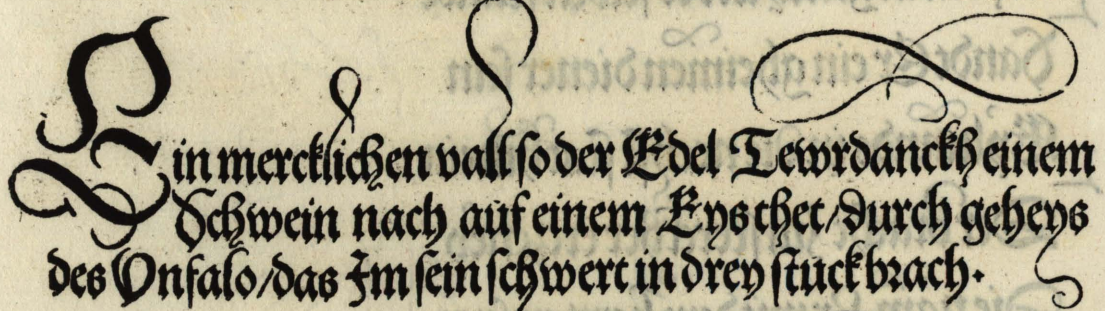 Ein mercklichen vall so der Edel Tewrdanckh einem
Schwein nach auf einem Eys thet/durch geheys
des Unfalo/das Im sein schwert in drey stuck brach.